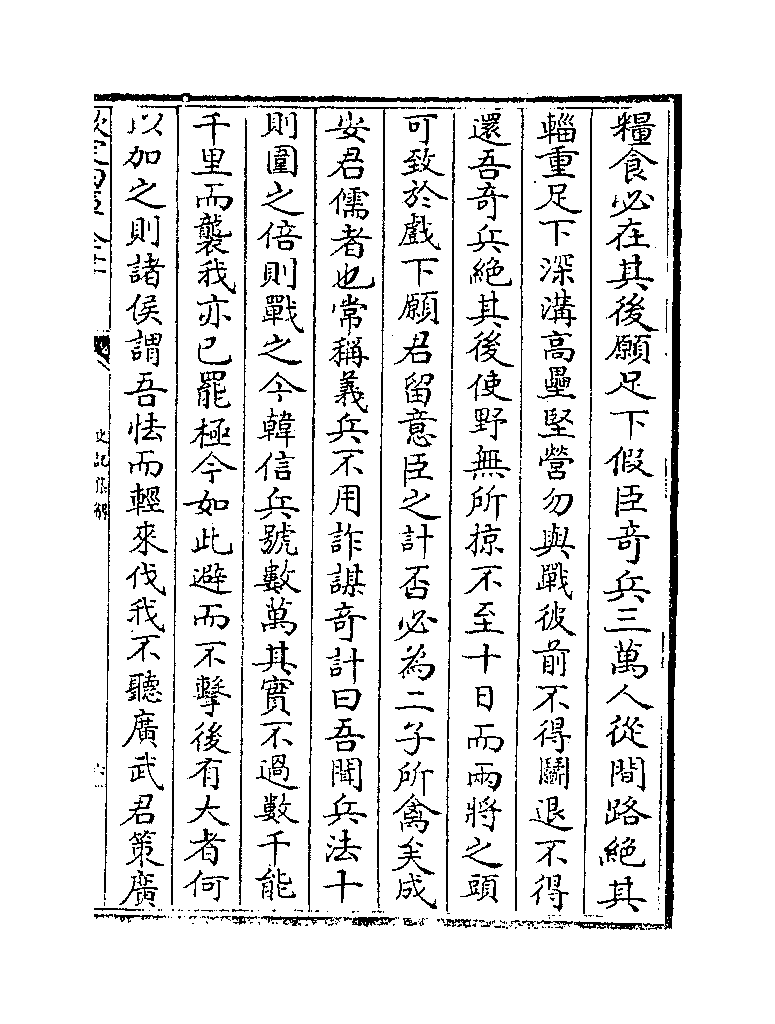 糧食必在其後願足下假臣奇兵三萬人從間路絶其
輜重足下深溝髙壘堅營勿與戰彼前不得鬭退不得
還吾奇兵絶其後使野無所掠不至十日而兩將之頭
可致於戲下願君留意臣之計否必為二子所禽矣成
安君儒者也常稱義兵不用詐謀奇計曰吾聞兵法十
則圍之倍則戰之今韓信兵號數萬其實不過數千能
千里而襲我亦已罷極今如此避而不擊後有大者何
以加之則諸侯謂吾怯而輕來伐我不聽廣武君策廣
欽定四庫全書
史記集解